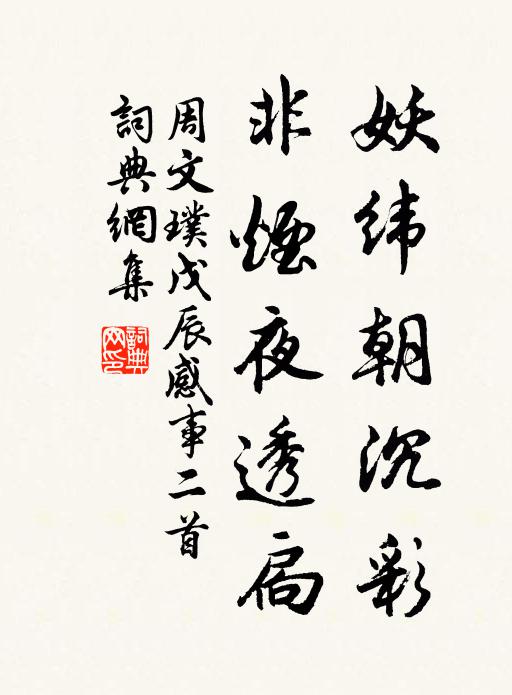 妖緯朝沉彩
非煙夜透扃
周文璞戊辰感事二首
詞典網集
詞典網印